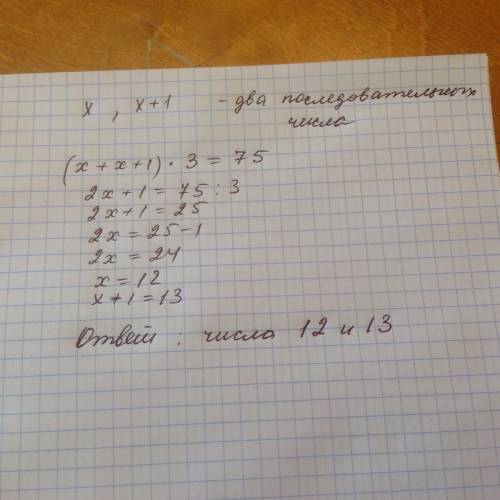 x , x+1 - два последовательных
числа
(x + x+1) · 3 = 75
2x + 1 = 75 : 3
2x + 1 = 25
2x = 25-1
2x = 24
x = 12
x+1 = 13
Ответ : числа 12 и 13